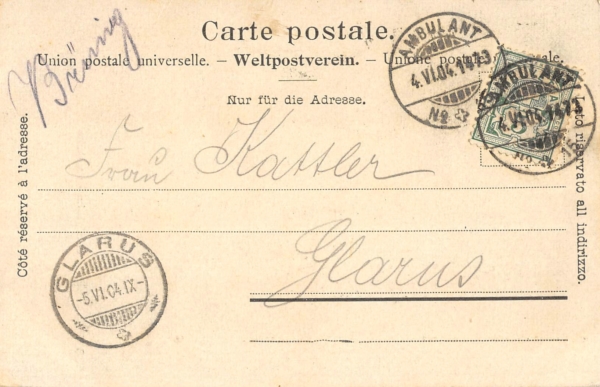 Carte postale.
Brünig
Union postale universelle. — Weltpostverein. — Unione postale
Nur für die Adresse.
Côté réservé à l'adresse.
riservato all indirizzo.
AMBULANT
4.VI.04.1473
No
AMBULANT
4.VI.04.1473
No
5
Frau Kattler
Glarus
GLARUS
-5.VI.04.IX-